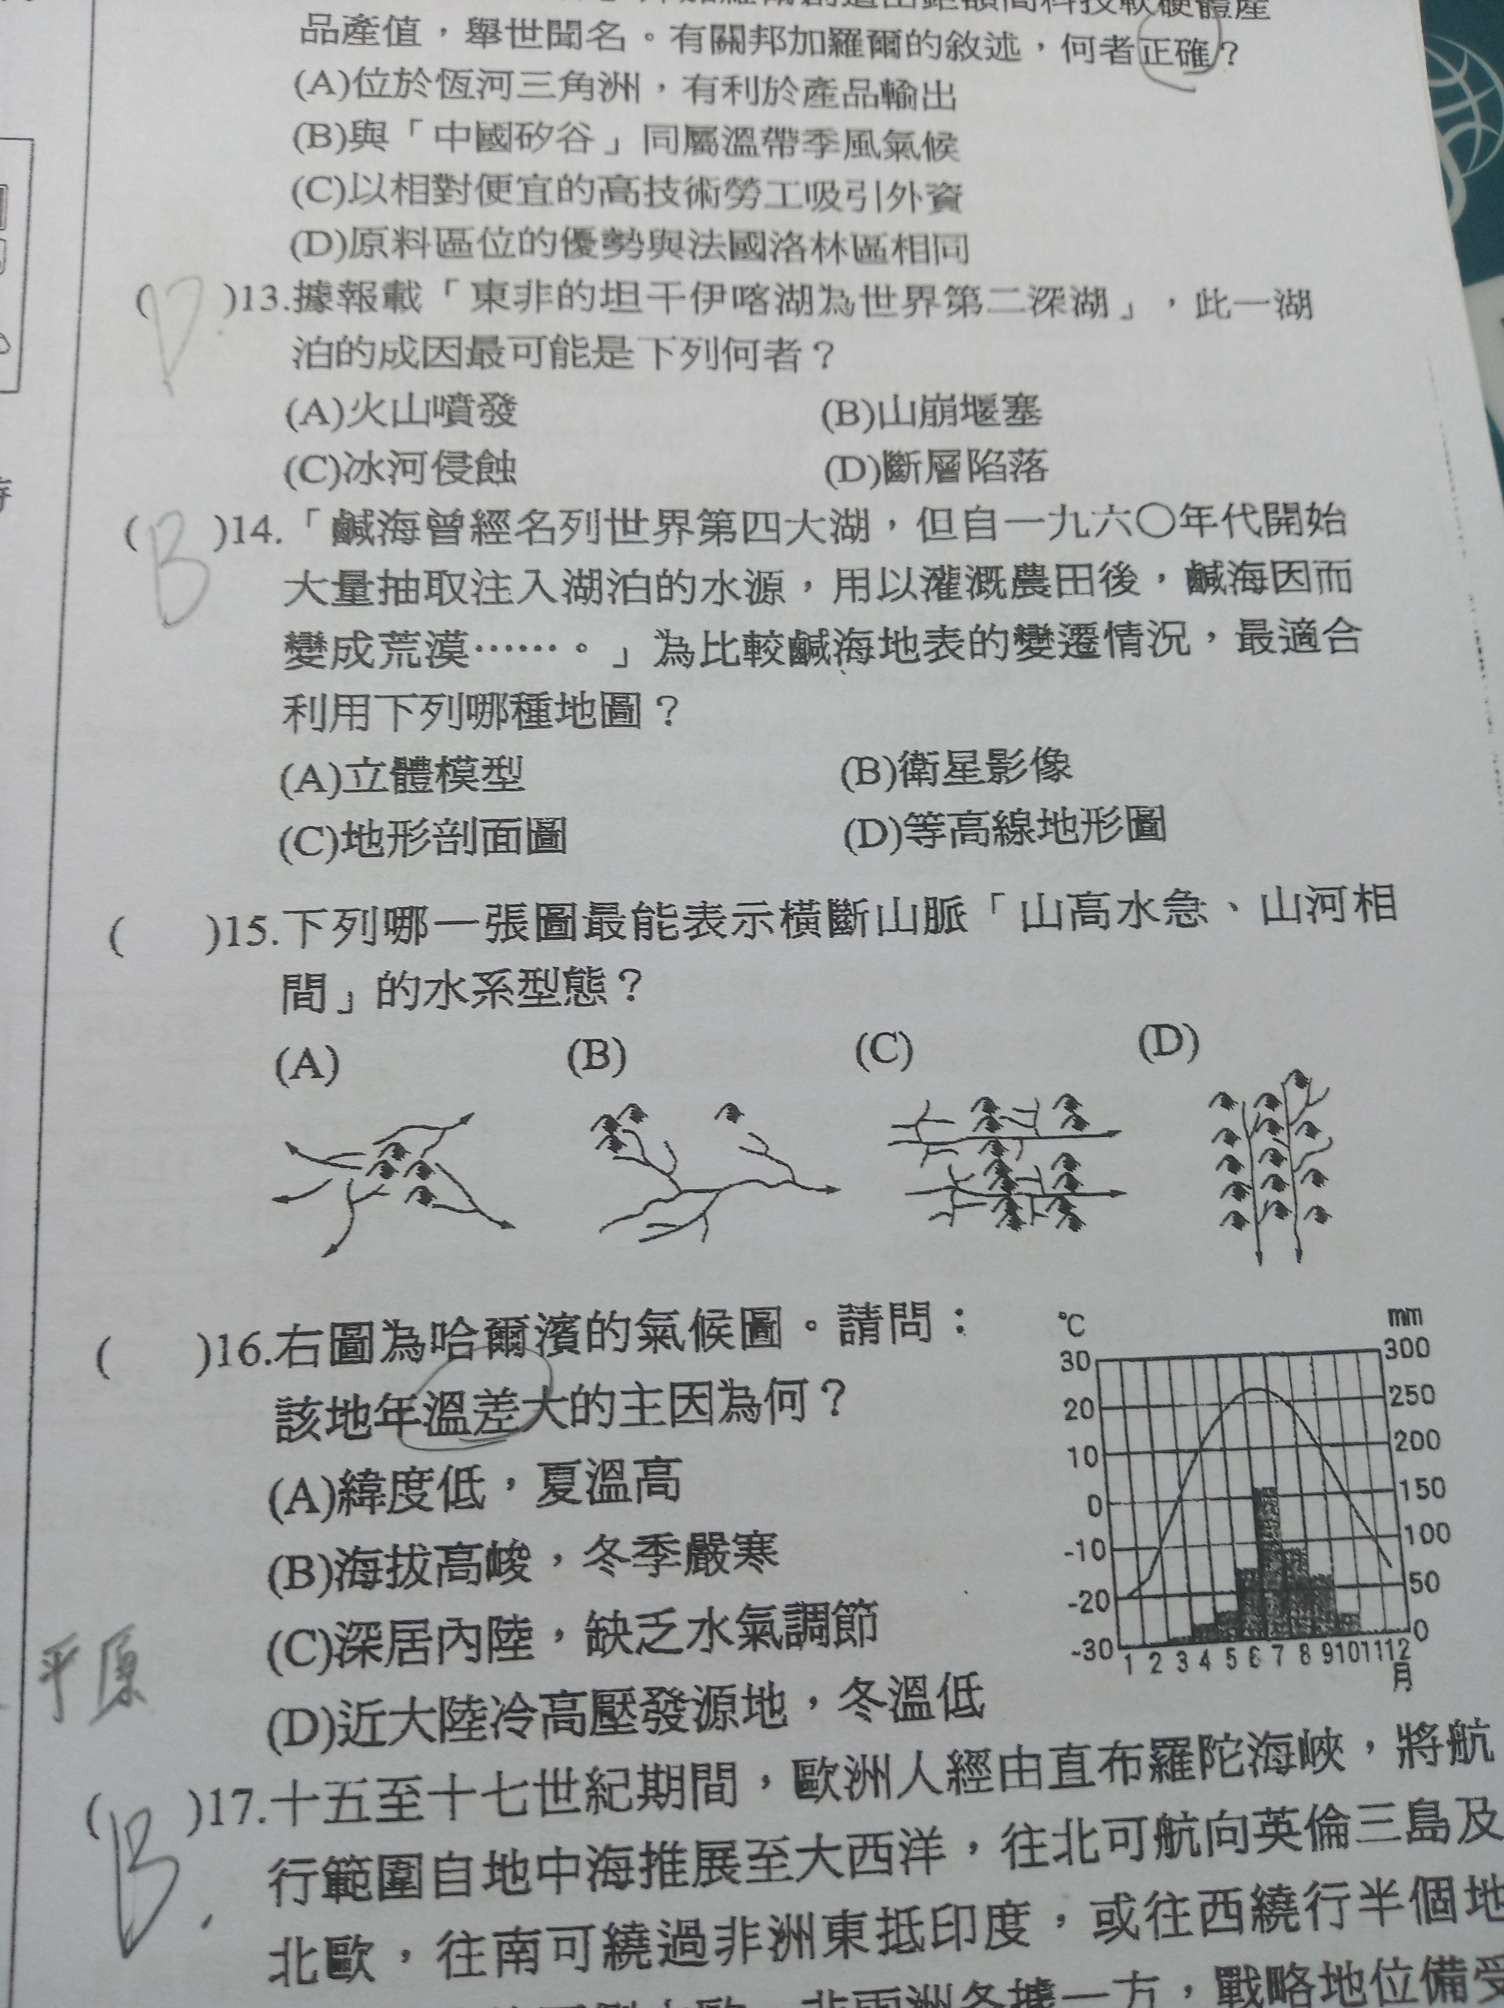 品產值，舉世聞名。有關邦加羅爾的敘述，何者正確？
(A)位於恆河三角洲，有利於產品輸出
(B)與「中國矽谷」同屬溫帶季風氣候
(C)以相對便宜的高技術勞工吸引外資
(D)原料區位的優勢與法國洛林區相同
( D )13.據報載「東非的坦干伊喀湖為世界第二深湖」，此一湖
泊的成因最可能是下列何者？
(A)火山噴發 (B)山崩堰塞
(C)冰河侵蝕 (D)斷層陷落
( B )14.「鹹海曾經名列世界第四大湖，但自一九六〇年代開始
大量抽取注入湖泊的水源，用以灌溉農田後，鹹海因而
變成荒漠……。」為比較鹹海地表的變遷情況，最適合
利用下列哪種地圖？
(A)立體模型 (B)衛星影像
(C)地形剖面圖 (D)等高線地形圖
( )15.下列哪一張圖最能表示橫斷山脈「山高水急、山河相
間」的水系型態？
(A) (B) (C) (D)
( )16.右圖為哈爾濱的氣候圖。請問：
該地年溫差大的主因為何？
(A)緯度低，夏溫高
(B)海拔高峻，冬季嚴寒
(C)深居內陸，缺乏水氣調節
(D)近大陸冷高壓發源地，冬溫低
℃ mm
30 300
20 250
10 200
0 150
-10 100
-20 50
-30 0
1 2 3 4 5 6 7 8 9 10 11 12
月
平原
( B )17.十五至十七世紀期間，歐洲人經由直布羅陀海峽，將航
行範圍自地中海推展至大西洋，往北可航向英倫三島及
北歐，往南可繞過非洲東抵印度，或往西繞行半個地
非兩洲各據一方，戰略地位備受